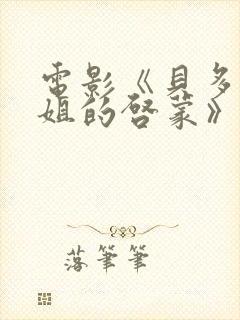 電影《貝多
姐的啓蒙》
落筆筆